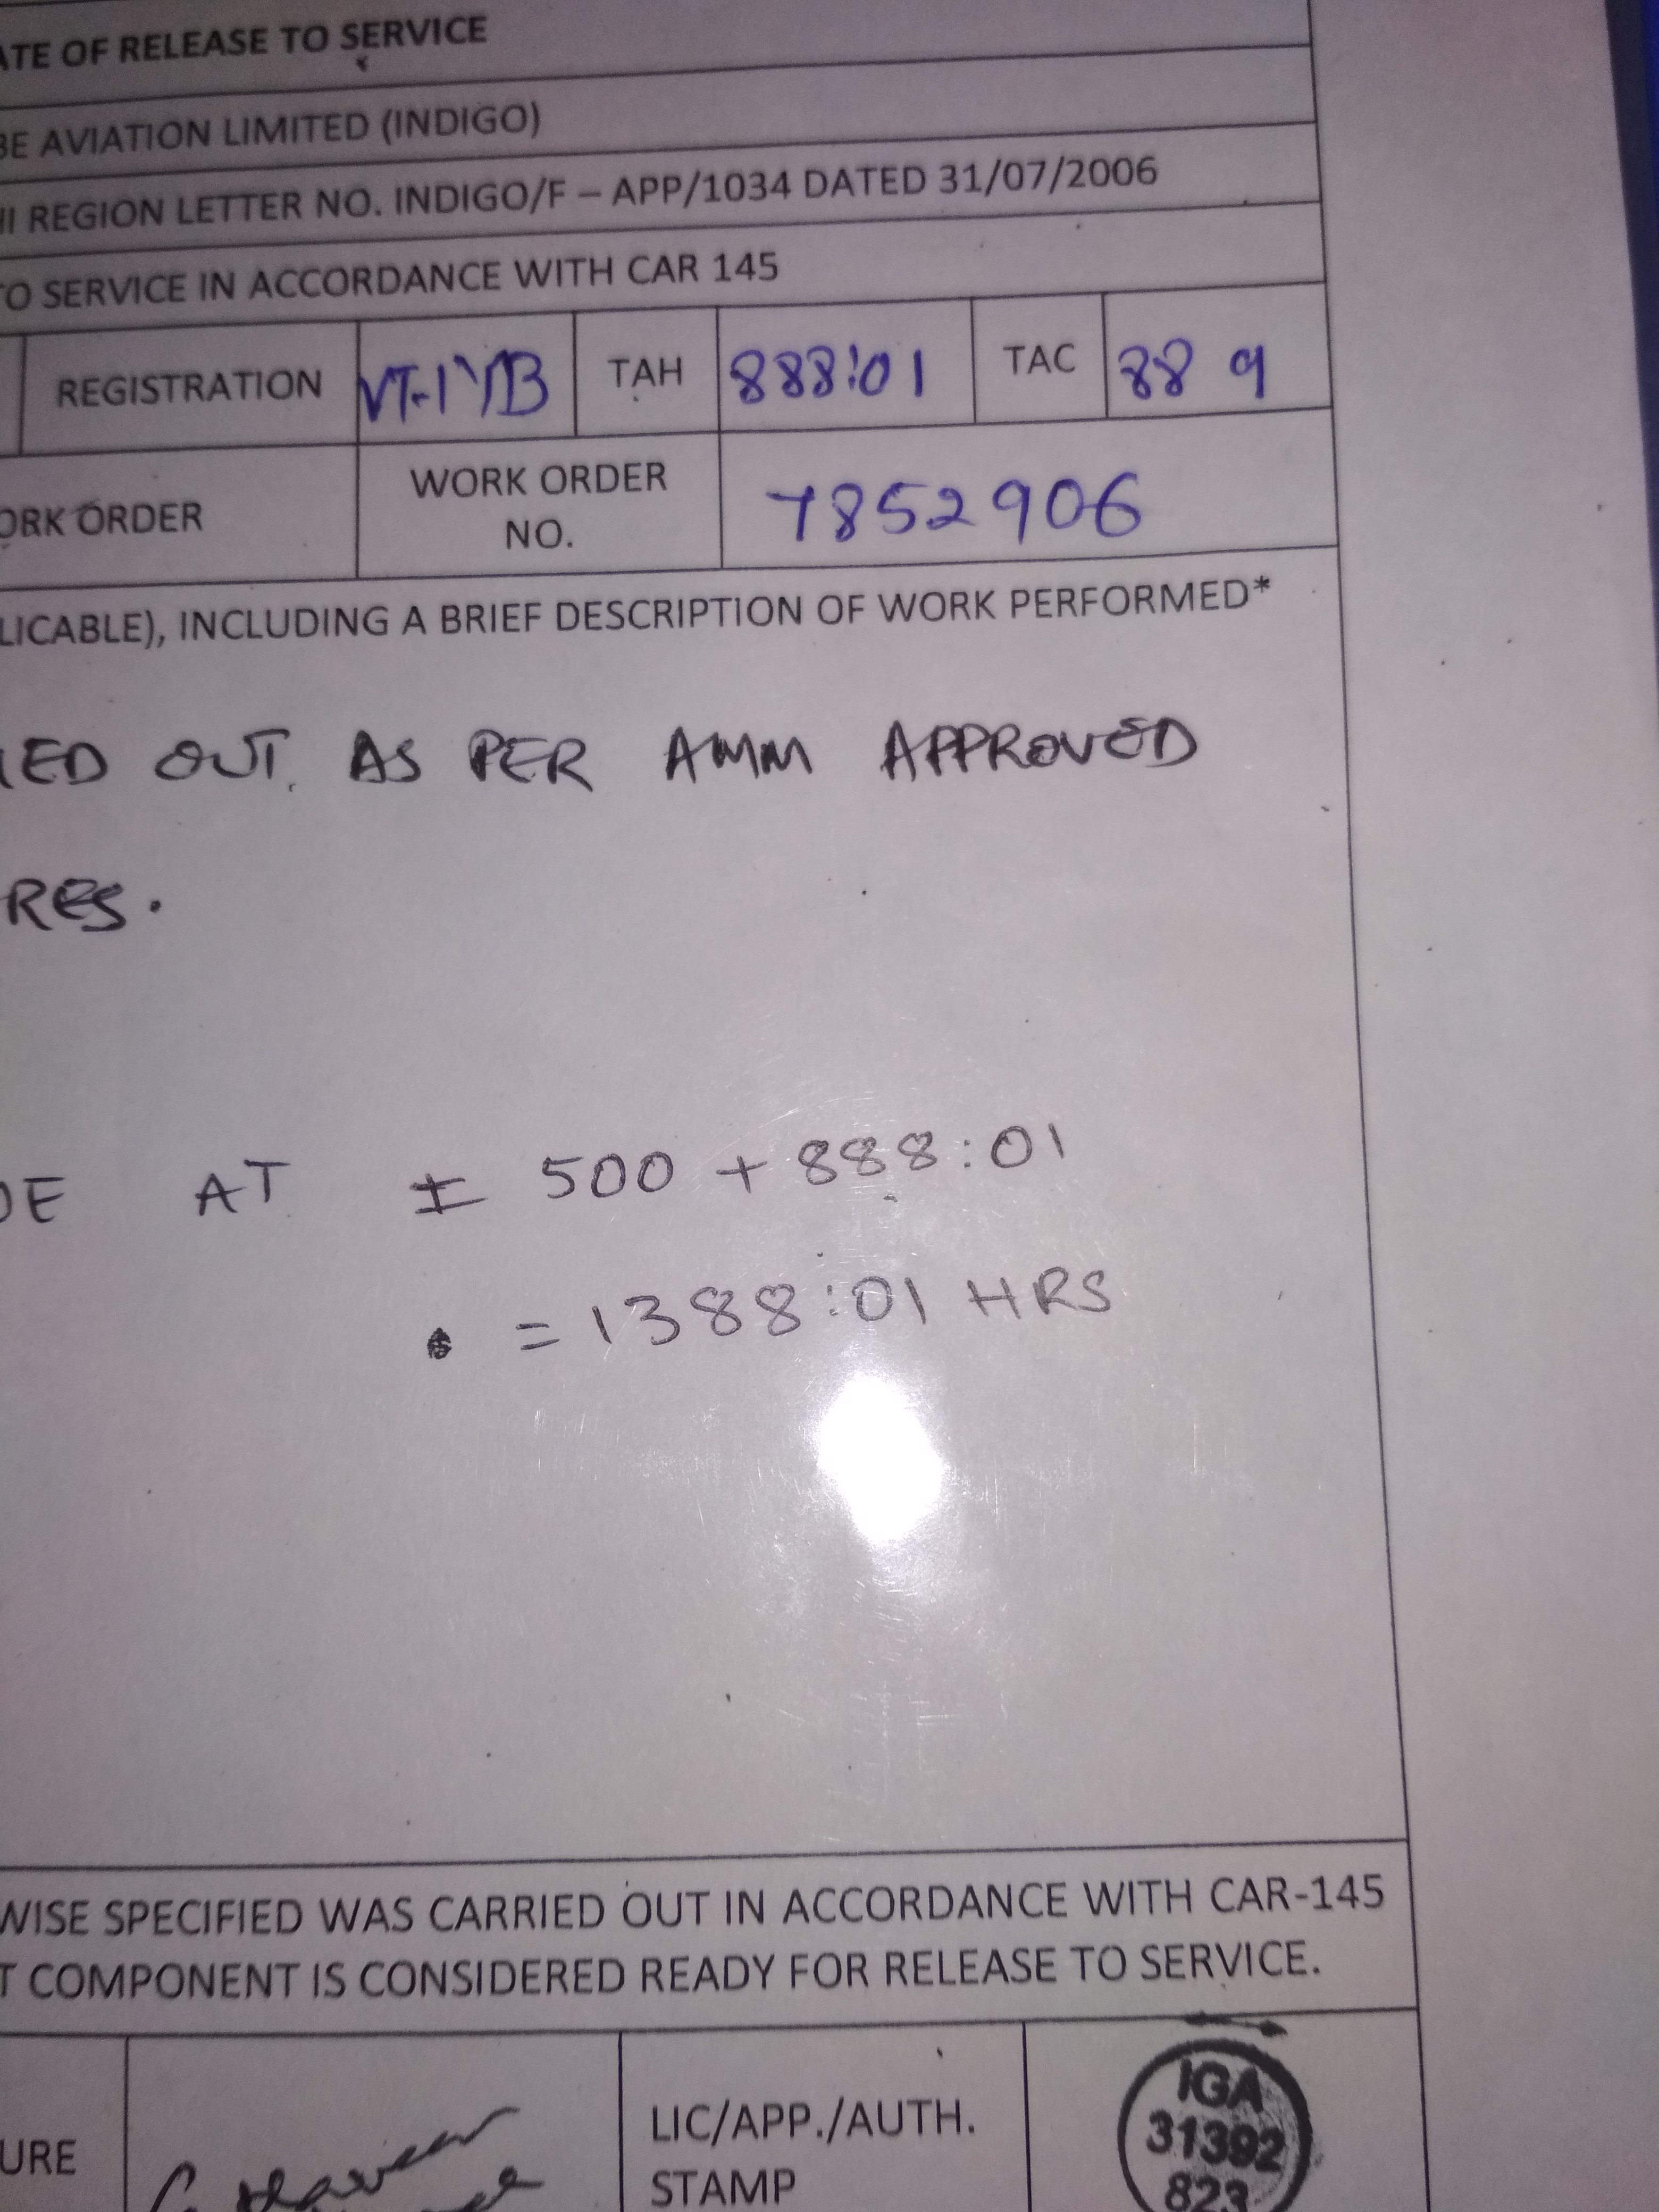 ATE OF RELEASE TO SERVICE
BE AVIATION LIMITED (INDIGO)
HI REGION LETTER NO. INDIGO/F – APP/1034 DATED 31/07/2006
TO SERVICE IN ACCORDANCE WITH CAR 145
REGISTRATION VT-IYB TAH 888:01 TAC 889
ORK ORDER WORK ORDER NO. 7852906
LICABLE), INCLUDING A BRIEF DESCRIPTION OF WORK PERFORMED*
IED OUT. AS PER AMM APPROVED
RES.
DE AT ± 500 + 888:01
= 1388:01 HRS
WISE SPECIFIED WAS CARRIED OUT IN ACCORDANCE WITH CAR-145
T COMPONENT IS CONSIDERED READY FOR RELEASE TO SERVICE.
URE LIC/APP./AUTH. STAMP
IGA
31392
823